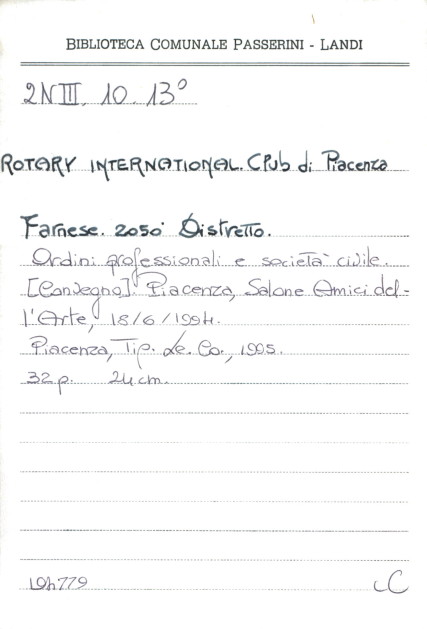 BIBLIOTECA COMUNALE PASSERINI - LANDI
2N III. 10. 13°
ROTARY INTERNATIONAL. Club di Piacenza
Farnese. 2050° Distretto.
Ordini professionali e società civile.
[Convegno]. Piacenza, Salone Amici del-
l'Arte, 18/6/1994.
Piacenza, Tip. Le. Co., 1995.
32 p. 24 cm.
194779
C